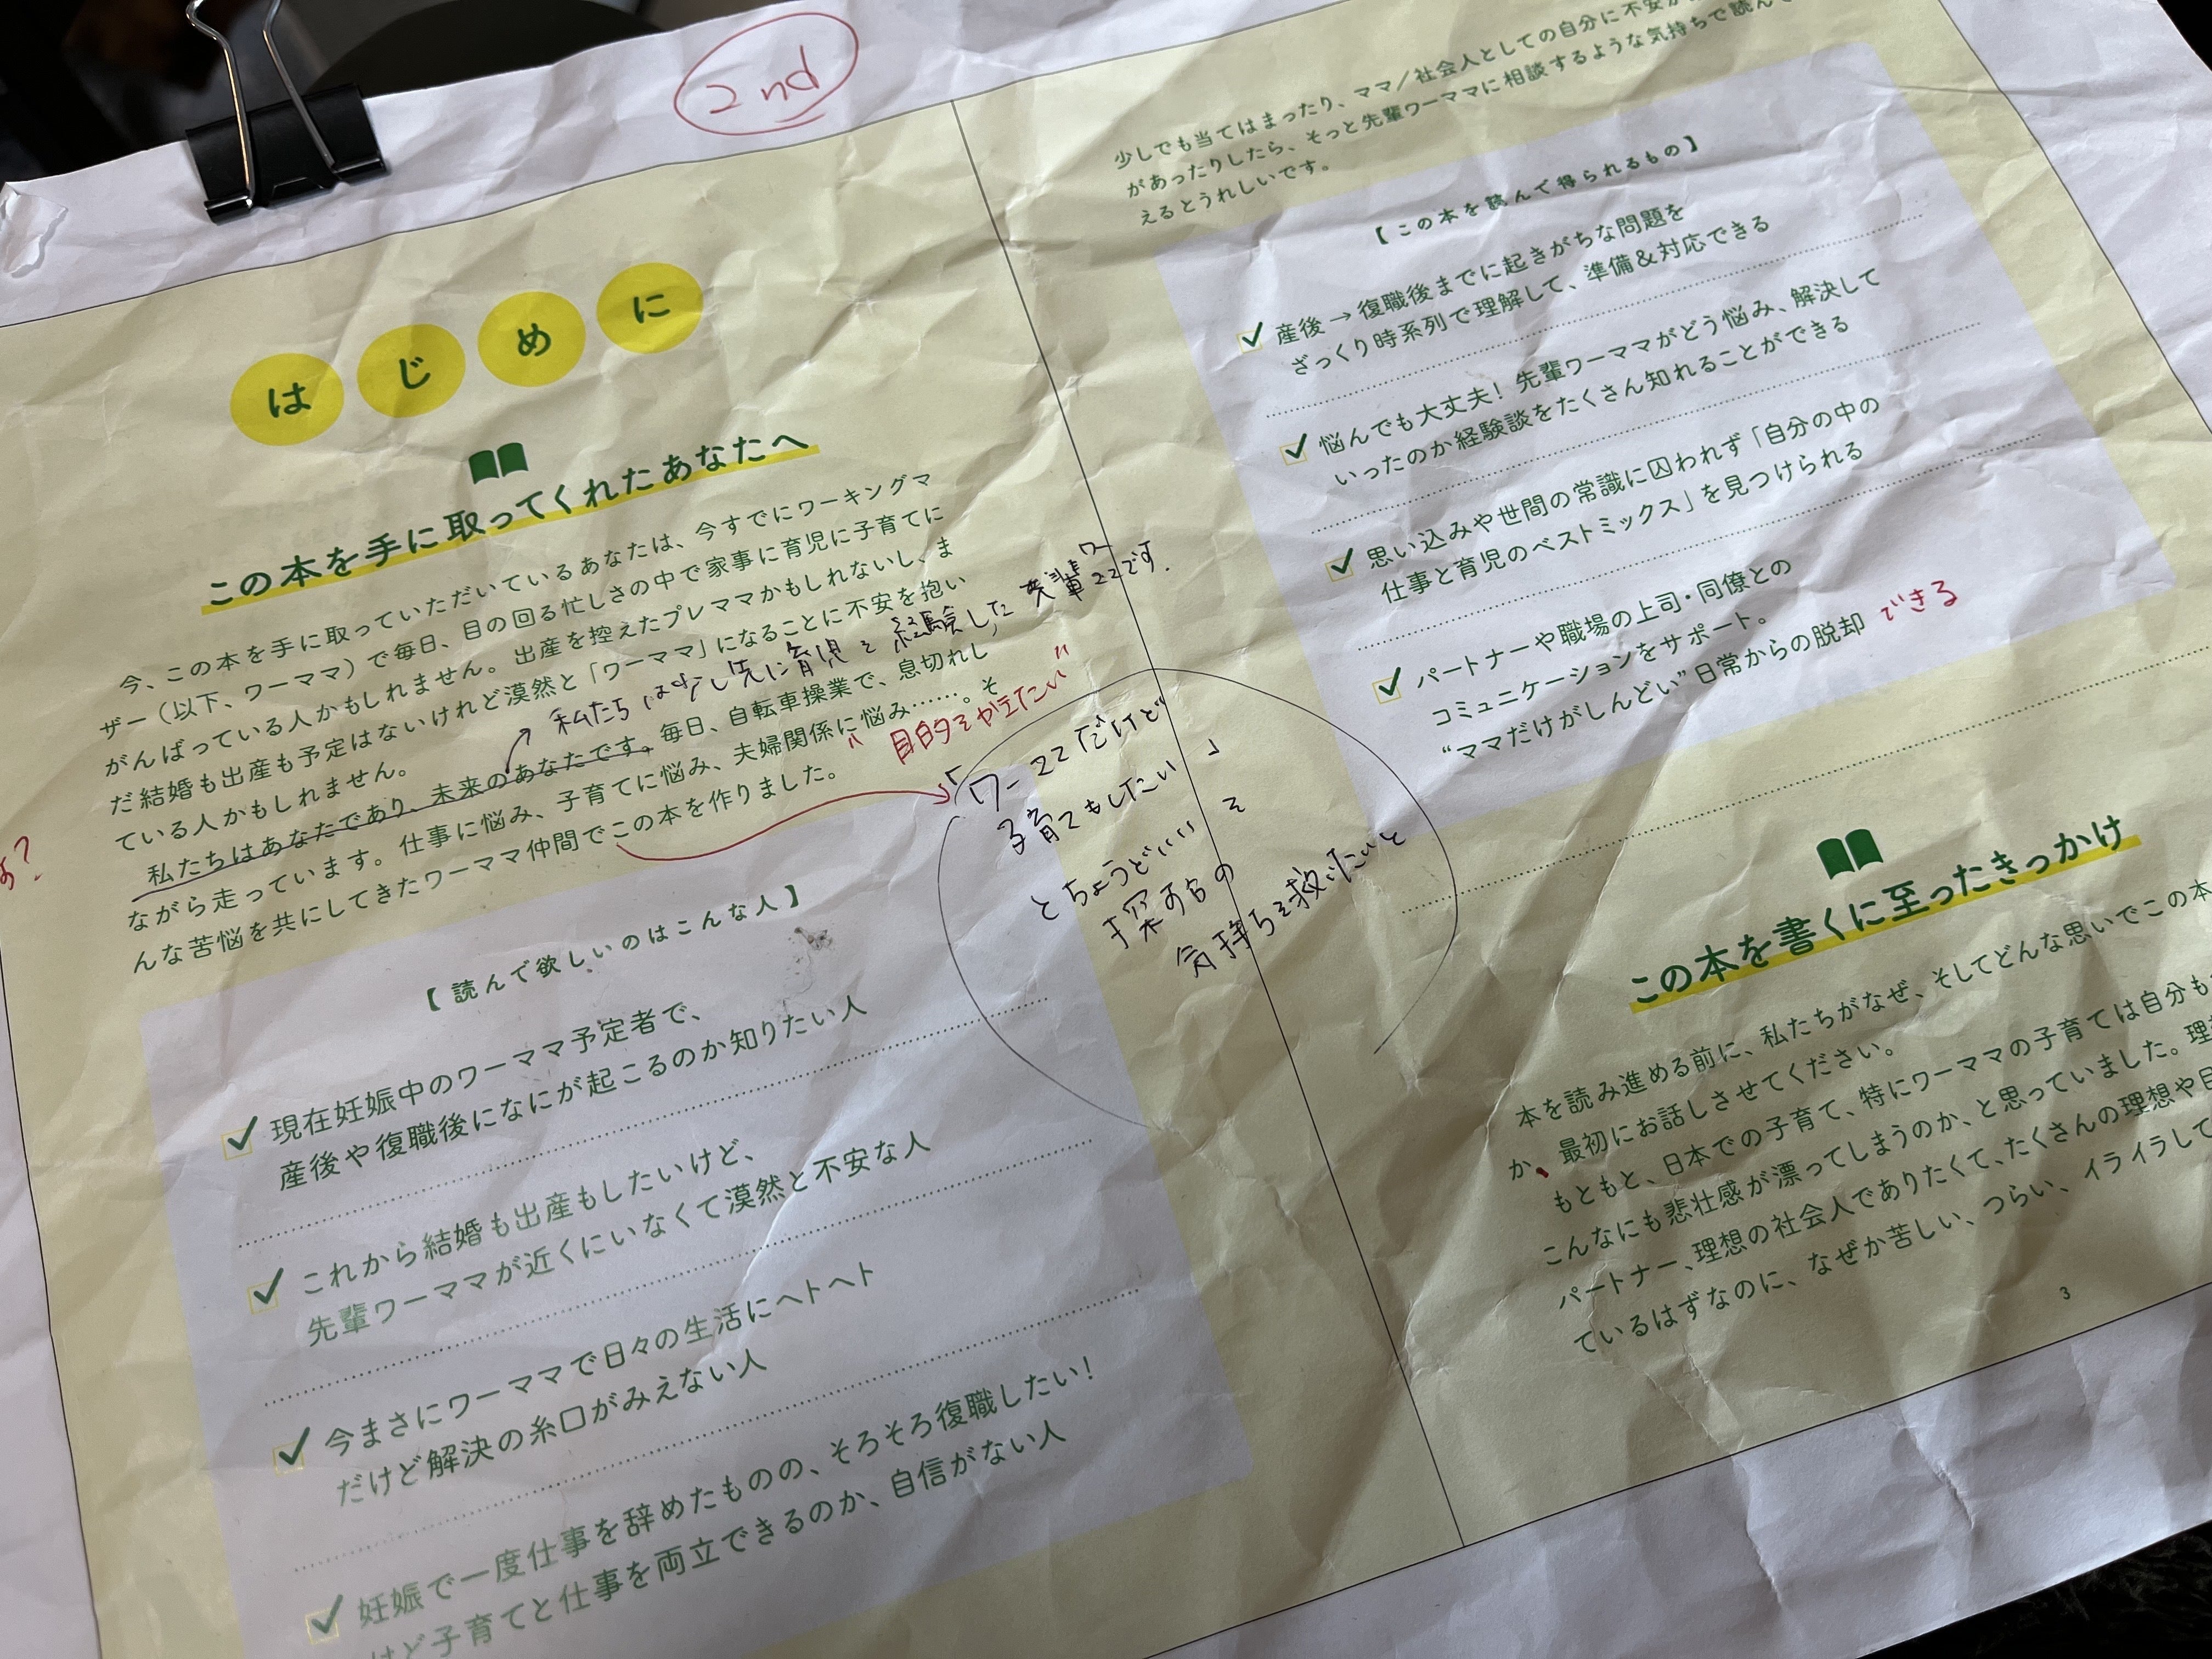 2nd
はじめに
この本を手に取ってくれたあなたへ
今、この本を手に取っていただいているあなたは、今すでにワーキングマ
ザー（以下、ワーママ）で毎日、目の回る忙しさの中で家事に育児に子育てに
がんばっている人かもしれません。出産を控えたプレママかもしれないし、ま
だ結婚も出産も予定はないけれど漠然と「ワーママ」になることに不安を抱い
ている人かもしれません。
私たちは少し先に育児を経験した先輩ワーママです.
私たちはあなたであり、未来のあなたです。毎日、自転車操業で、息切れし
ながら走っています。仕事に悩み、子育てに悩み、夫婦関係に悩み……。そ
んな苦悩を共にしてきたワーママ仲間でこの本を作りました。
"目的を加えたい"
「ワーママだけど
子育てもしたい」
とちょうどいいを
探す
気持ちを救いたいと
【読んで欲しいのはこんな人】
現在妊娠中のワーママ予定者で、
産後や復職後になにが起こるのか知りたい人
これから結婚も出産もしたいけど、
先輩ワーママが近くにいなくて漠然と不安な人
今まさにワーママで日々の生活にヘトヘト
だけど解決の糸口がみえない人
妊娠で一度仕事を辞めたものの、そろそろ復職したい！
けど子育てと仕事を両立できるのか、自信がない人
少しでも当てはまったり、ママ／社会人としての自分に不安が
があったりしたら、そっと先輩ワーママに相談するような気持ちで読んで
えるとうれしいです。
【この本を読んで得られるもの】
産後→復職後までに起きがちな問題を
ざっくり時系列で理解して、準備＆対応できる
悩んでも大丈夫！ 先輩ワーママがどう悩み、解決して
いったのか経験談をたくさん知れることができる
思い込みや世間の常識に囚われず「自分の中の
仕事と育児のベストミックス」を見つけられる
パートナーや職場の上司・同僚との
コミュニケーションをサポート。
“ママだけがしんどい”日常からの脱却 できる
この本を書くに至ったきっかけ
本を読み進める前に、私たちがなぜ、そしてどんな思いでこの本
か、最初にお話しさせてください。
もともと、日本での子育て、特にワーママの子育ては自分も
こんなにも悲壮感が漂ってしまうのか、と思っていました。理
パートナー、理想の社会人でありたくて、たくさんの理想や目
ているはずなのに、なぜか苦しい、つらい、イライラして
3